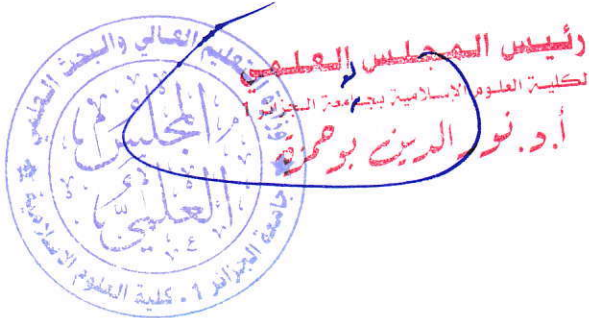 رئيس المجلس العلمي
لكلية العلوم الإسلامية بجامعة الجزائر 1
أ.د. نور الدين بوحمزة
وزارة التعليم العالي والبحث العلمي
المجلس
العلمي
جامعة الجزائر 1 . كلية العلوم الاسلامية